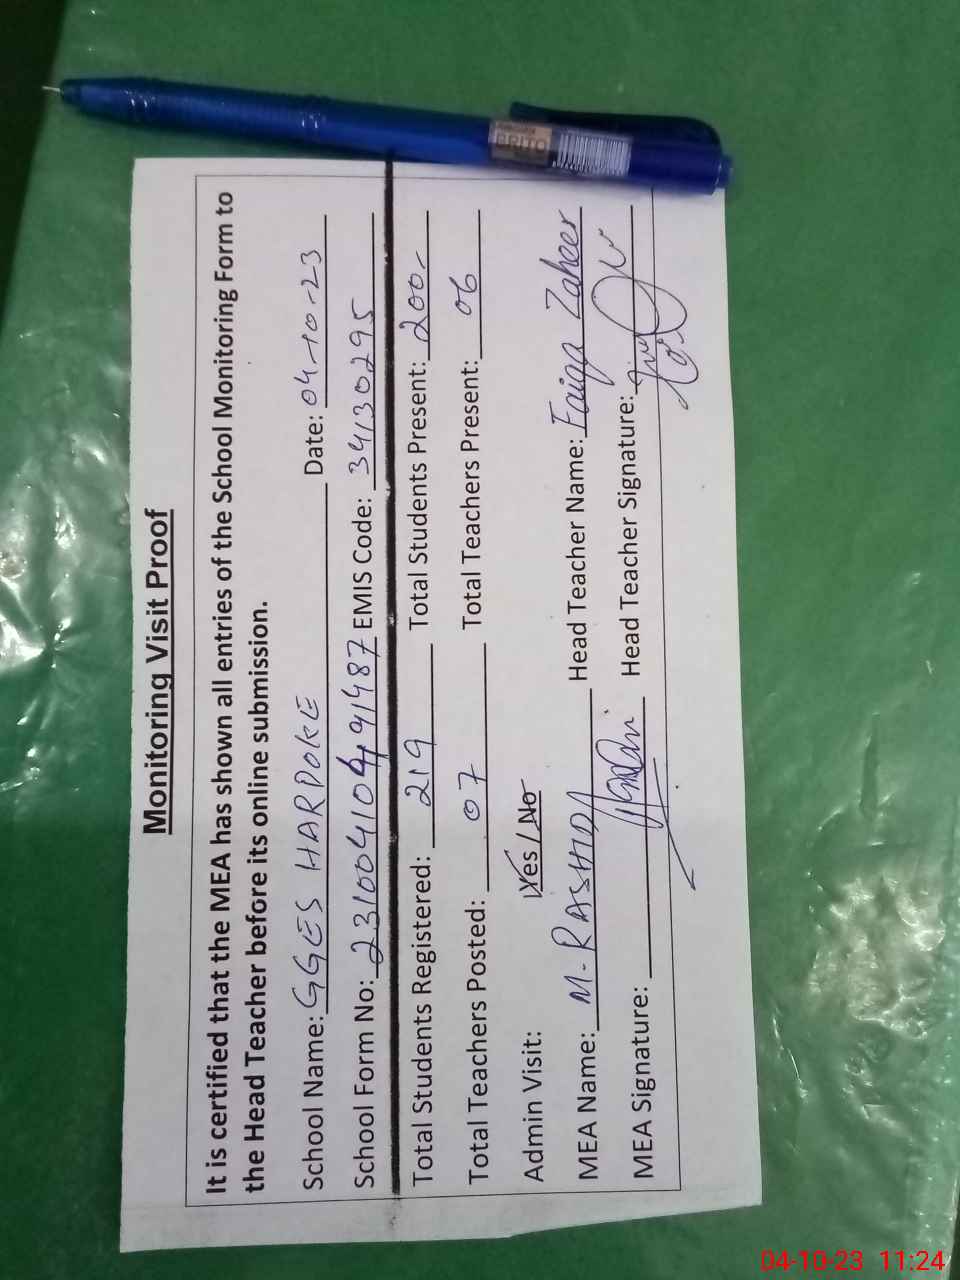 Monitoring Visit Proof
It is certified that the MEA has shown all entries of the School Monitoring Form to
the Head Teacher before its online submission.
School Name: GGES HARPOKE Date: 04-10-23
School Form No: 23100410491487 EMIS Code: 34130295
Total Students Registered: 219 Total Students Present: 200-
Total Teachers Posted: 07 Total Teachers Present: 06
Admin Visit: Yes / No
MEA Name: M. RASHID Head Teacher Name: Faiqa Zaheer
MEA Signature: Head Teacher Signature:
BRITO
04-10-23 11:24